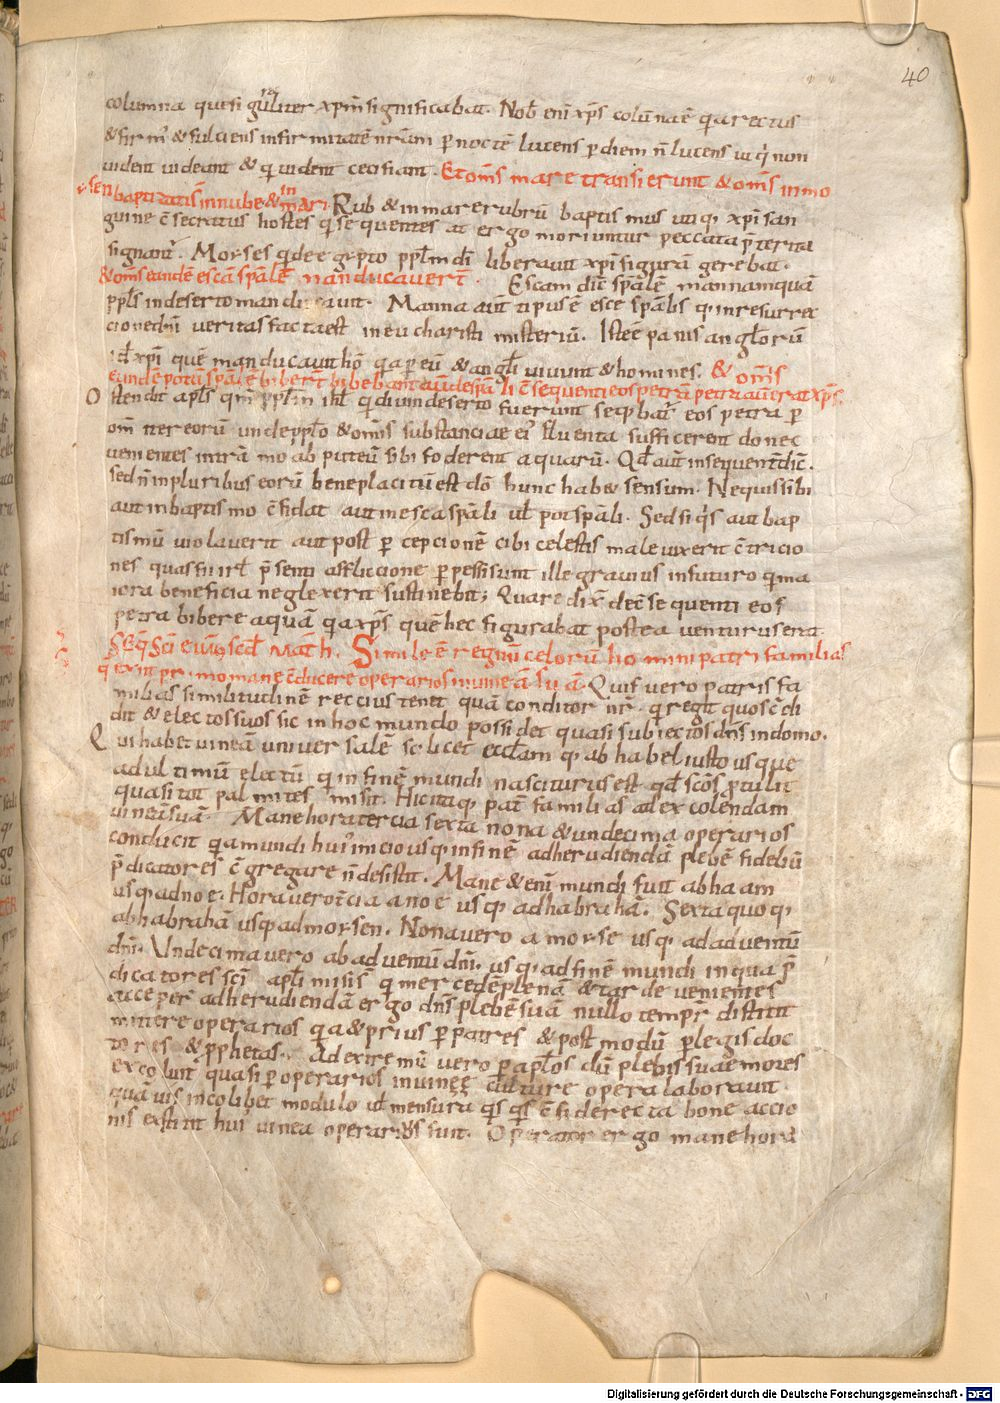 40
columna quasi gul̄iter xp̄m significabat. Nob̄ eni xp̄s colūna ē q̄a rectus
& firm' & fulciens infirmitatē nrām p noctē lucens p diem n̄ lucens ut q̄ non
uident uideant & q̄ uident ceci fiant. Et om̄s mare transierunt & om̄s in mo
ysen baptizati s̄ in nube & in mari. Rub & in mare rubrū baptismus utiq; xp̄i san
guine c̄secratus hostes q̄ sequentes at ergo moriuntur peccata p̄terita
signant'. Moyses q̄ de egypto ppl̄m dī liberauit xp̄i figurā gerebat.
& om̄s eandē escā sp̄alē manducauerт̄. Escam dic̄ sp̄alē manna quā
ppl̄s in deserto manducauit. Manna aut̄ tipus ē esce sp̄alis q; in resurrec
cione dn̄i ueritas facta est in eucharisti misteriū. Iste ē panis anglorū
id̄ xp̄i quē manducauit hō q̄a p eū & angl̄i uiuunt & homines. & om̄s
eundē potū sp̄alē biberт̄ bibebant aut̄ de sp̄ali c̄sequenti eos petrā petra aut̄ erat xp̄s.
Ostendit apl̄s qm̄ ppl̄m isrl̄ q̄ diu in deserto fuerunt seq̄bat' eos petra p
om̄ iter eorū unde pplo & om̄s substanciae ei' fluenta sufficerent donec
uenientes intrā moab puteū sibi foderent aquarū. Qd̄ aut̄ insequenт̄ dic̄.
sed n̄ in pluribus eorū beneplacitū est dō hunc hab& sensum. Nequis sibi
aut in baptismo c̄fidat aut in esca sp̄ali ul̄ pot sp̄ali. Sed si q̄s aut bap
tismū uiolauerit aut post pcepcionē cibi celestis male uixerit c̄tricio
nes quas fii isrl̄ p̄senti affliccione ppessi sunt ille grauius in futuro q̄ ma
iora beneficia neglexerit sustinebit; Quare dix̄ de c̄sequenti eos
petra bibere aquā q̄a xp̄s quē hec figurabat postea uenturus erat.
Seq̄ sc̄i euu̅g scd̄ Math. Simile ē regnū celorū homini patrifamilias
q̄ exiit primo mane c̄ducere operarios in uineā suā. Quis uero patrisfa
milias similitudinē reccius tenet quā conditor nr̄. q̄ regit quos c̄di
dit & electos suos sic in hoc mundo possidet quasi subiectos dn̄s in domo.
Qui habet uineā uniuersalē scilicet eccl̄am q; ab habel iusto usque
ad ultimū electū q̄ in fine mundi nasciturus est qd̄ sc̄os ptulit
quasi tot palmites misit. Hic itaq; pat̄ familias ad excolendam
uineā suā. Mane hora tercia sexta nona & undecima operarios
conducit q̄a mundi hui' inicio usq; in finē ad herudiendā plebē fidebū
p̄dicatores c̄gregare n̄ desistit. Mane & eni mundi fuit ab haam
usq; ad noe. Hora uero т̄cia a noe usq; ad habrahā. Sexta quoq;
ab habrahā usq; ad moysen. Nona uero a moyse usq; ad aduentū
dn̄i. Undecima uero ab aduentū dn̄i. usq; ad finē mundi in qua p̄
dicatores sc̄i apl̄i misi s̄ q̄ mercedē plenā & tarde uenientes
acceper̄ ad herudiendā ergo dn̄s plebē suā nullo tempr̄ distitit
mittere operarios q̄a & prius p patres & postmodū p legis doc
tores & p̄phetas. Ad extremū uero p apl̄os dū plebis suae mores
excoluit quasi p operarios in uineę culture opera laborauit.
quā uis in colibet modulo ul̄ mensura q̄s q̄s c̄si de recta bone accio
nis exstitit hui' uinea operarius fuit. Operator ergo mane hora
Digitalisierung gefördert durch die Deutsche Forschungsgemeinschaft - DFG